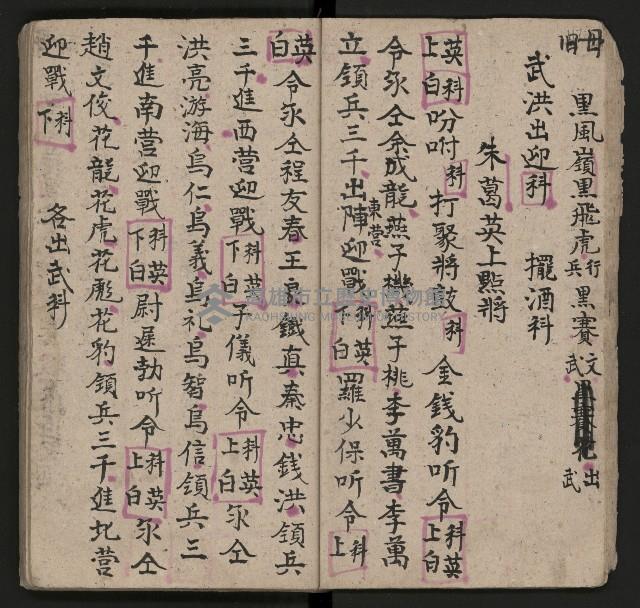 毌 黑風嶺黑飛虎行兵黑賽文武花出武
武洪出迎科 擺酒科
朱葛英上點將
英上白 科 吩咐 科 打聚將鼓 科 金錢豹听令 科上 英白
令永仝余成龍燕子 燕子桃李萬書李萬
立領兵三千出陣東营迎戰 科下 英白 羅少保听令 科上
英白 令永仝程友春王 鐵真秦忠钱洪領兵
三千進西营迎戰 科下 英白 子儀听令 科上 英白 永仝
洪亮游海烏仁烏義烏礼烏智烏信領兵三
千進南营迎戰 科下 英白 尉遲勃听令 科上 英白 永仝
趙文俊花龍花虎花彪花豹領兵三千進北营
迎戰 科下 各出武科
高雄市立歷史博物館
KAOHSIUNG MUSEUM OF HISTORY